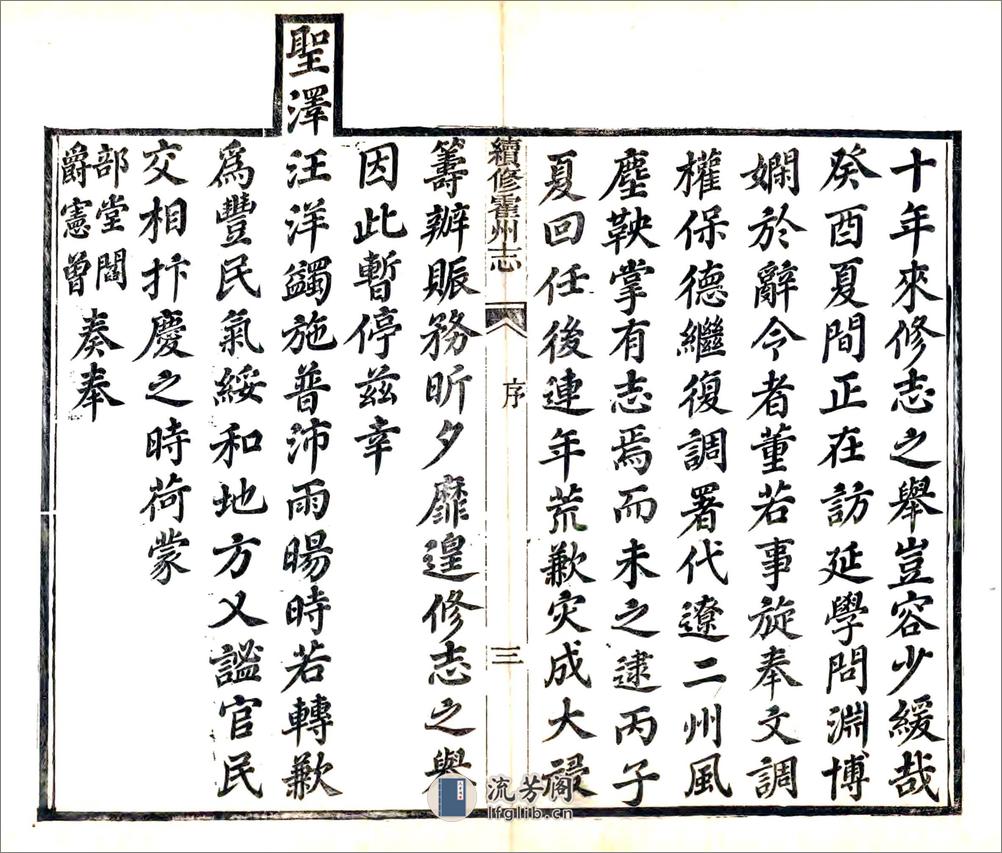 十年來修志之舉豈容少緩哉
癸酉夏間正在訪延學問淵博
嫻於辭令者董若事旋奉文調
權保德繼復調署代遼二州風
塵鞅掌有志焉而未之逮丙子
夏回任後連年荒歉灾成大祲
續修霍州志
序
三
籌辦賑務昕夕靡遑修志之舉
因此暫停兹幸
聖澤汪洋蠲施普沛雨暘時若轉歉
為豐民氣綏和地方乂謐官民
交相抃慶之時荷蒙
部堂閻
爵憲曾
奏奉
流芳阁
lfglib.cn